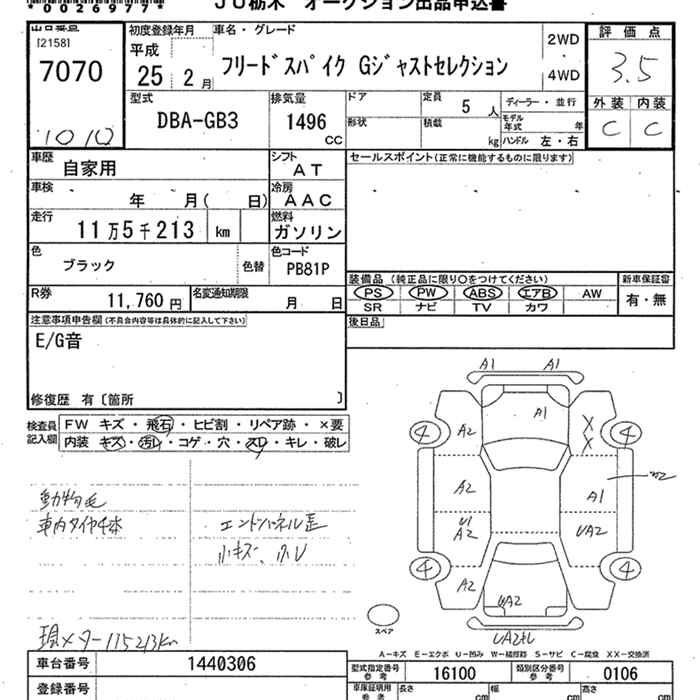 *0026977*
JU栃木 オークション出品申込書
出品番号
[2158]
7070
1010
初度登録年月
平成
25 2月
車名・グレード
フリードスパイク Gジャストセレクション
2WD
・
4WD
評価点
3.5
外装 内装
C C
型式
DBA-GB3
排気量
1496
CC
ドア
定員
5 人
ディーラー・並行
形状
積載
kg
モデル年式 年
ハンドル 左・右
車歴
自家用
シフト
AT
車検
年 月( 日)
冷房
AAC
走行
11万5千213 km
燃料
ガソリン
色
ブラック
色替
色コード
PB81P
R券
11,760円
名変通知期限
月 日
セールスポイント(正常に機能するものに限ります)
装備品 (純正品に限り○をつけてください)
新車保証書
PS PW ABS エアB AW
SR ナビ TV カワ
有・無
後日品
注意事項申告欄(不具合内容等は具体的に記入して下さい)
E/G音
修復歴 有〔箇所 〕
検査員記入欄
FW キズ・飛石・ヒビ割・リペア跡・×要
内装 キズ・汚れ・コゲ・穴・スレ・キレ・破レ
動物毛
車内タイヤ4本
小キズ、小U
現メーター115213km
A1 A1
A1
4 A2 X X 4
A2 A1
U1
A2 UA2
4 A2 4
WA2
スペア
A-キズ E-エクボ U-凹み W-補修跡 S-サビ C-腐食 XX-交換済
車台番号
1440306
登録番号
型式指定番号
参考
16100
類別区分番号
参考
0106
車庫証明用
参考
長さ cm
幅 cm
高さ cm